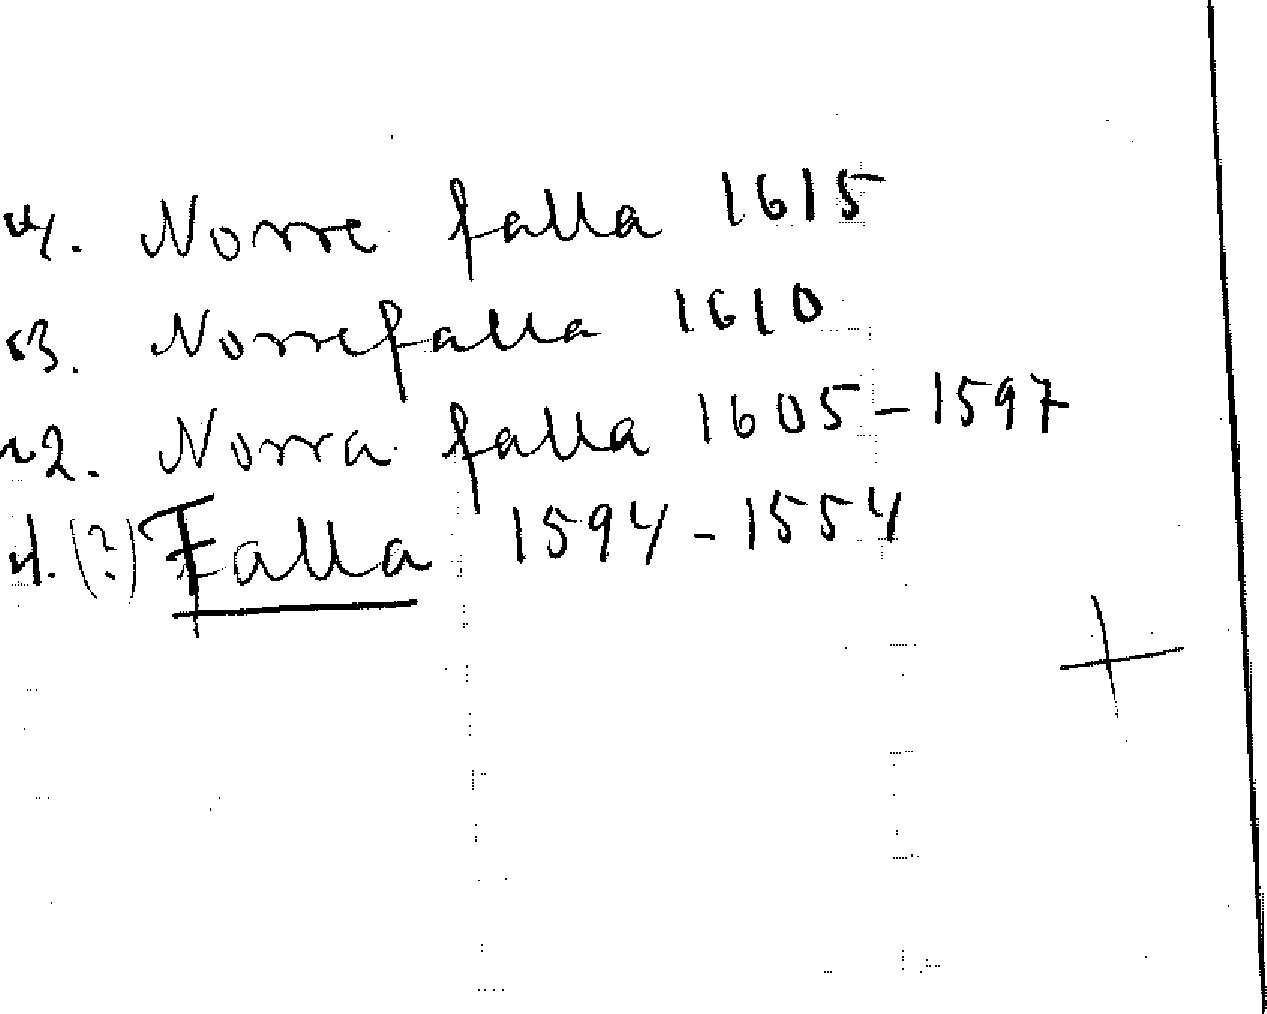 4. Norre falla 1615
3. Norrefalla 1610
2. Norra falla 1605-1597
1. (?) Falla 1594-1554